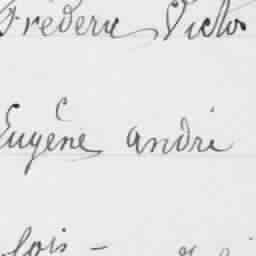 Fréderic Victor
Eugène andré
lois –